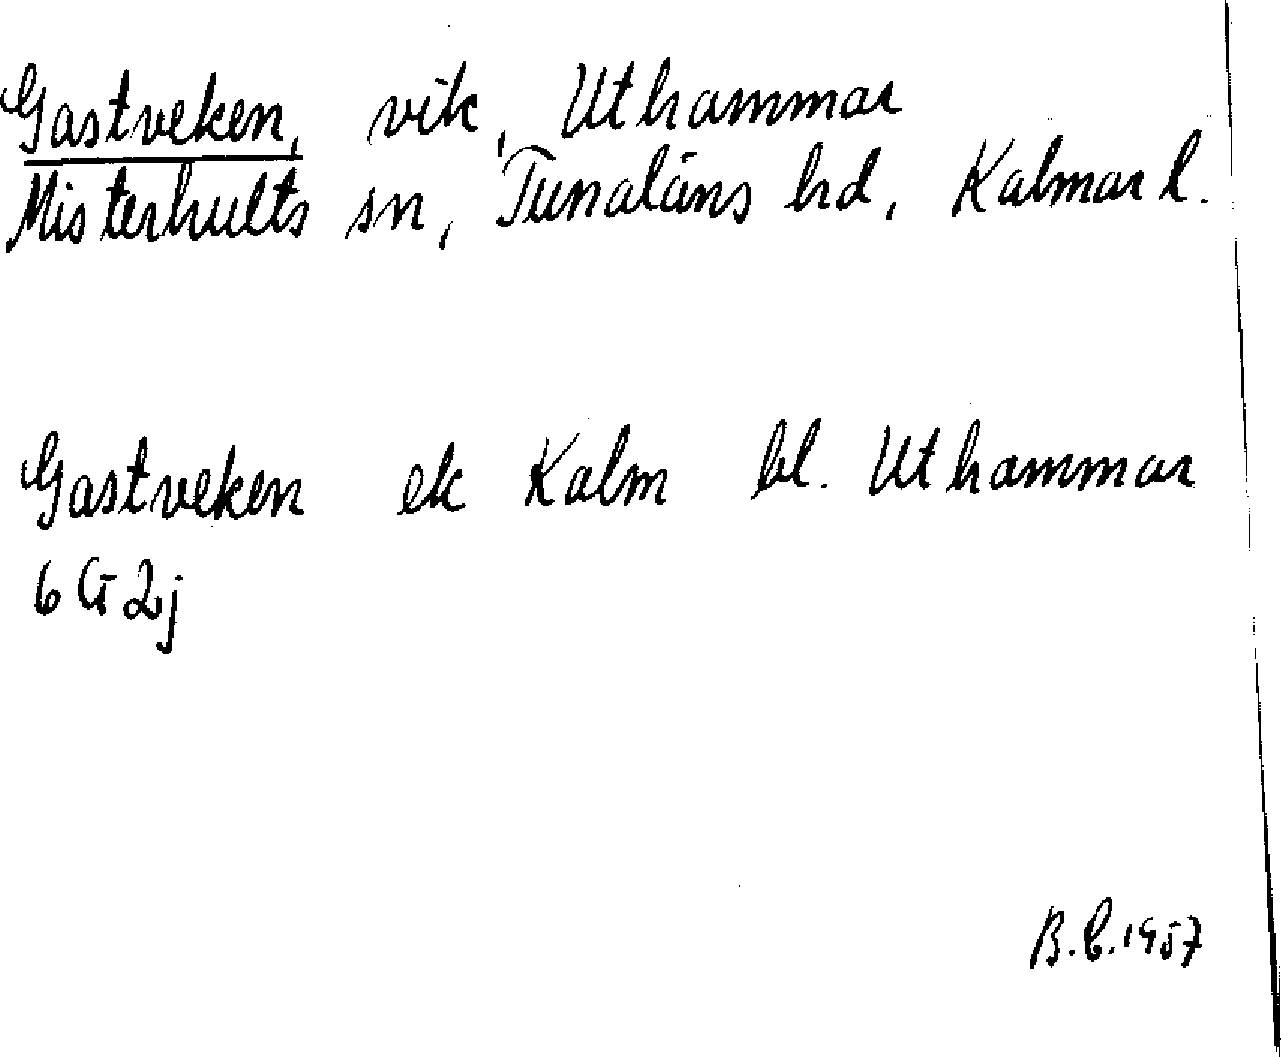 Gastveken, vik, Uthammar
Misterhults sn, Tunaläns hd, Kalmar l.
Gastveken ek Kalm bl. Uthammar
6 G 2j
B.C. 1957